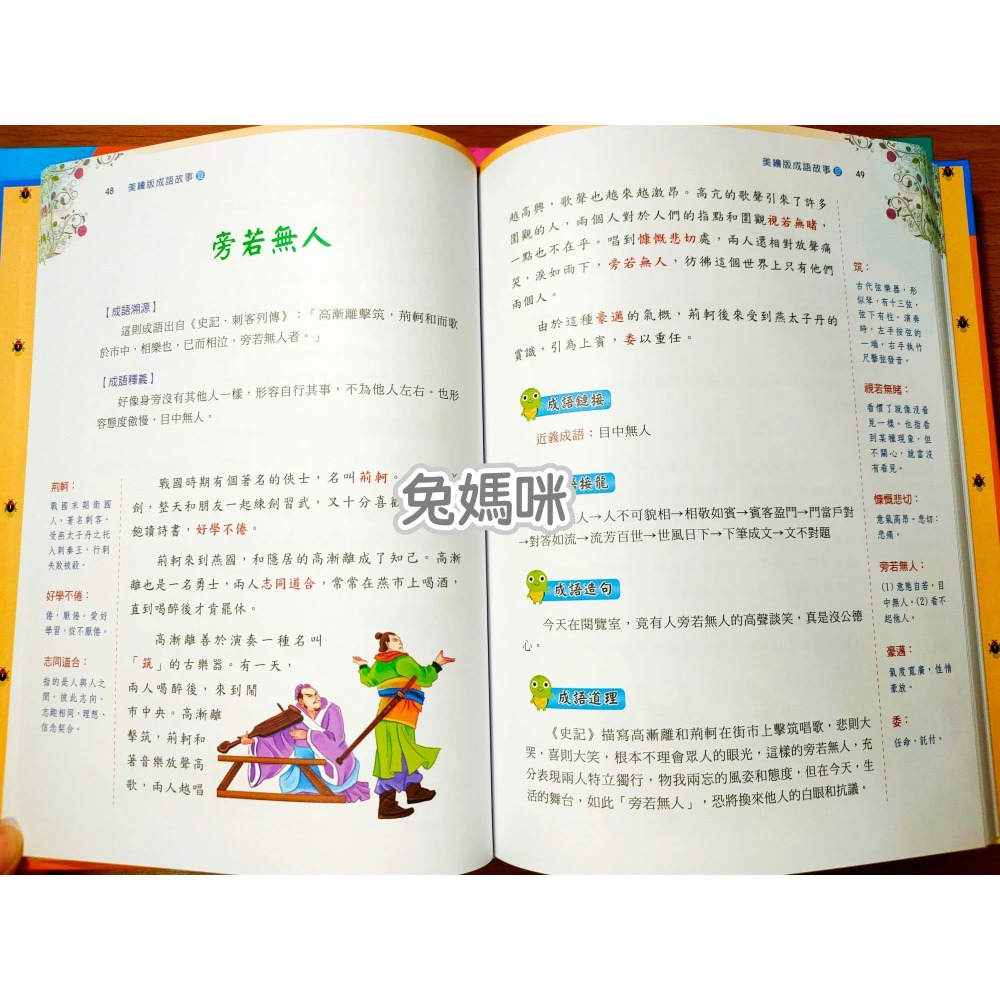 48 美繪版成語故事
旁若無人
【成語溯源】
這則成語出自《史記．刺客列傳》：「高漸離擊筑，荊軻和而歌
於市中，相樂也，已而相泣，旁若無人者。」
【成語釋義】
好像身旁沒有其他人一樣，形容自行其事，不為他人左右。也形
容態度傲慢，目中無人。
荊軻：
戰國末期衛國
人，著名刺客。
受燕太子丹之托
入刺秦王，行刺
失敗被殺。
好學不倦：
倦，厭倦。愛好
學習，從不厭倦。
志同道合：
指的是人與人之
間，彼此志向、
志趣相同，理想、
信念契合。
戰國時期有個著名的俠士，名叫荊軻。
劍，整天和朋友一起練劍習武，又十分喜
飽讀詩書，好學不倦。
荊軻來到燕國，和隱居的高漸離成了知己。高漸
離也是一名勇士，兩人志同道合，常常在燕市上喝酒，
直到喝醉後才肯罷休。
高漸離善於演奏一種名叫
「筑」的古樂器。有一天，
兩人喝醉後，來到鬧
市中央。高漸離
擊筑，荊軻和
著音樂放聲高
歌，兩人越唱
兔媽咪
美繪版成語故事 49
越高興，歌聲也越來越激昂。高亢的歌聲引來了許多
圍觀的人，兩個人對於人們的指點和圍觀視若無睹，
一點也不在乎。唱到慷慨悲切處，兩人還相對放聲痛
哭，淚如雨下，旁若無人，彷彿這個世界上只有他們
兩個人。
由於這種豪邁的氣概，荊軻後來受到燕太子丹的
賞識，引為上賓，委以重任。
成語鏈接
近義成語：目中無人
接龍
人→人不可貌相→相敬如賓→賓客盈門→門當戶對
→對答如流→流芳百世→世風日下→下筆成文→文不對題
成語造句
今天在閱覽室，竟有人旁若無人的高聲談笑，真是沒公德
心。
成語道理
《史記》描寫高漸離和荊軻在街市上擊筑唱歌，悲則大
哭，喜則大笑，根本不理會眾人的眼光，這樣的旁若無人，充
分表現兩人特立獨行，物我兩忘的風姿和態度，但在今天，生
活的舞台，如此「旁若無人」，恐將換來他人的白眼和抗議。
筑：
古代弦樂器，形
似琴，有十三弦，
弦下有柱。演奏
時，左手按弦的
一端，右手執竹
尺擊弦發音。
視若無睹：
看慣了就像沒看
見一樣。也指看
到某種現象，但
不關心，就當沒
有看見。
慷慨悲切：
意氣高昂。悲切：
悲痛。
旁若無人：
(1) 意態自若，目
中無人。(2) 看不
起他人。
豪邁：
氣度寬廣，性情
豪放。
委：
任命，託付。